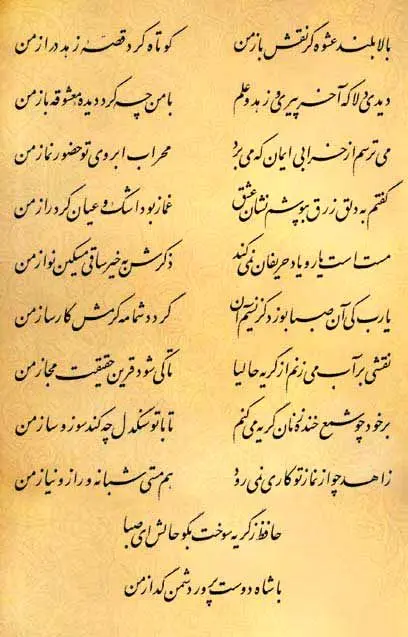 بالابلند عشوه گر نقش باز من کوتاه کرد قصهٔ زهد دراز من
دیدی دلا که آخر پیری و زهد و علم با من چه کرد دیده معشوقه باز من
می ترسم از خرابی ایمان که می برد محراب ابروی تو حضور نماز من
گفتم به دلق زرق بپوشم نشان عشق غماز بود اشک و عیان کرد راز من
مست است یار و یاد حریفان نمی کند ذکرش به خیر ساقی مسکین نواز من
یا رب کی آن صبا بوزد کز نسیم آن گردد شمامه کرمش کارساز من
نقشی بر آب می زنم از گریه حالیا تا کی شود قرین حقیقت مجاز من
بر خود چو شمع خنده زنان گریه می کنم تا با تو سنگدل چه کند سوز و ساز من
زاهد چو از نماز تو کاری نمی رود هم مستی شبانه و راز و نیاز من
حافظ ز گریه سوخت بگو حالش ای صبا
با شاه دوست پرور دشمن گداز من